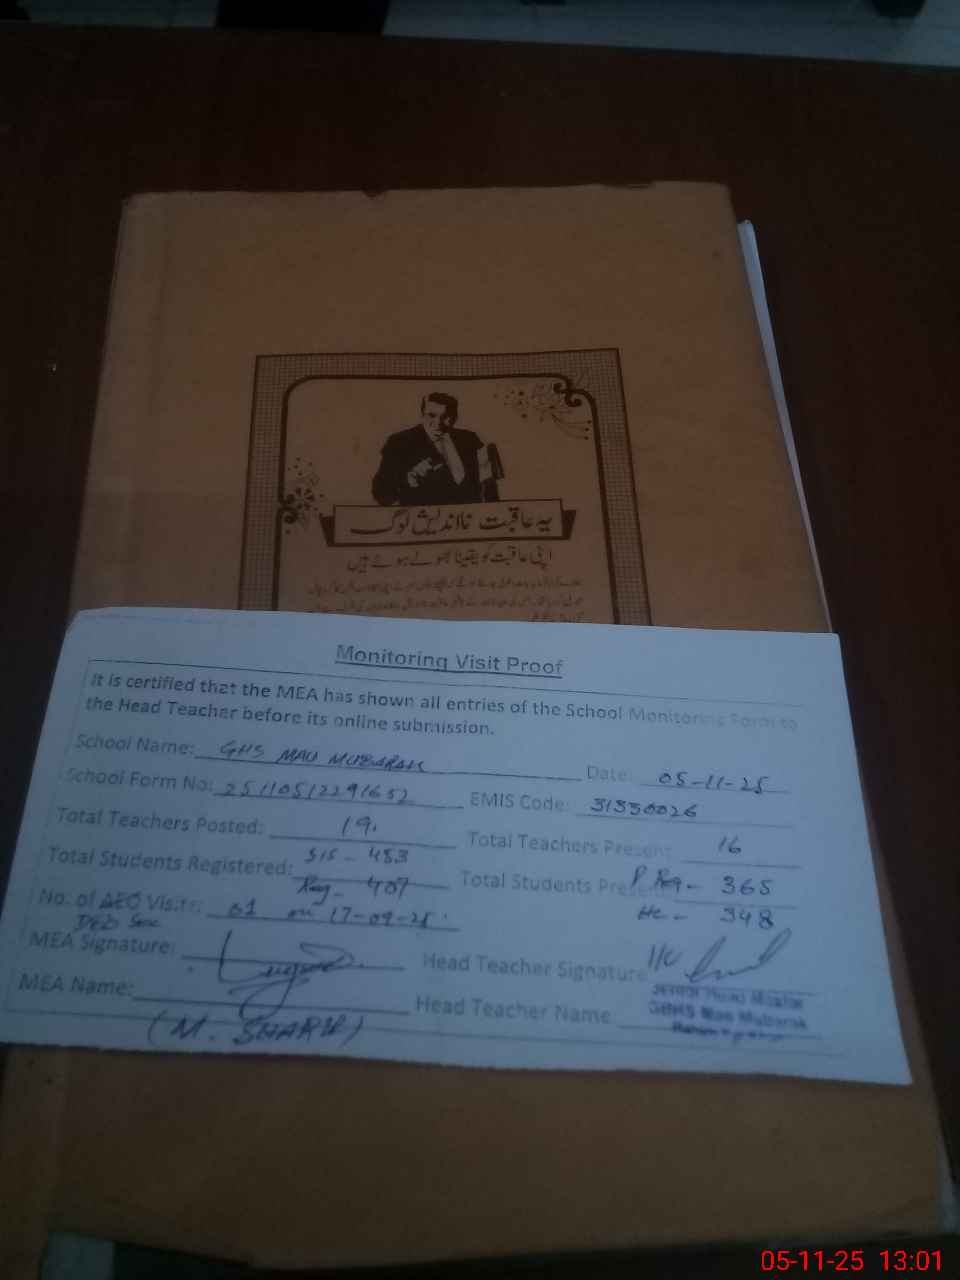 یہ عاقبت نااندیش لوگ
اپنی عاقبت کو یقیناً بھولے ہوئے ہیں
Monitoring Visit Proof
It is certified that the MEA has shown all entries of the School Monitoring Form to
the Head Teacher before its online submission.
School Name: GHS MAU MUBARAK Date: 05-11-25
School Form No: 25110512291652 EMIS Code: 31330026
Total Teachers Posted: 19. Total Teachers Present 16
Total Students Registered: SIS - 453 Total Students Present P. Reg - 365
Reg - 407 Hc - 348
No. of AEO Visits: 01 on 17-09-25
DED Sec
MEA Signature: Head Teacher Signature
MEA Name: Head Teacher Name
(M. SHARIF)
Senior Head Master
GHS Mau Mubarak
05-11-25 13:01